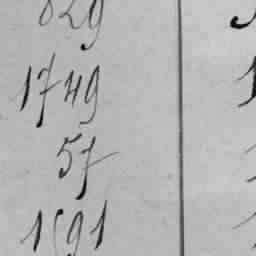 829
1749
57
1591